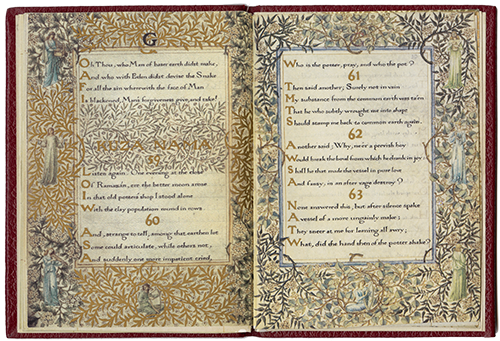 Oh Thou, who Man of baser earth didst make,
And who with Eden didst devise the Snake
For all the sin wherewith the face of Man
Is blackened, Man's forgiveness give, and take!
KUZA NAMA
59
Listen again. One evening at the close
Of Ramazan, ere the better moon arose
In that old potters shop I stood alone
With the clay population round in rows
60
And, strange to tell, among that earthen lot
Some could articulate, while others not,
And suddenly one more impatient cried,
Who is the potter, pray, and who the pot?
61
Then said another; Surely not in vain
My substance from the common earth was ta'en
That he who subtly wrought me into shape
Should stamp me back to common earth again.
62
Another said; Why, ne'er a peevish boy
Would break the bowl from which he drank in joy
Shall he that made the vessel in pure love
And fansy, in an after rage destroy?
63
None answered this; but after silence spake
A vessel of a more ungainly make;
They sneer at me for leaning all awry;
What, did the hand then of the potter shake?